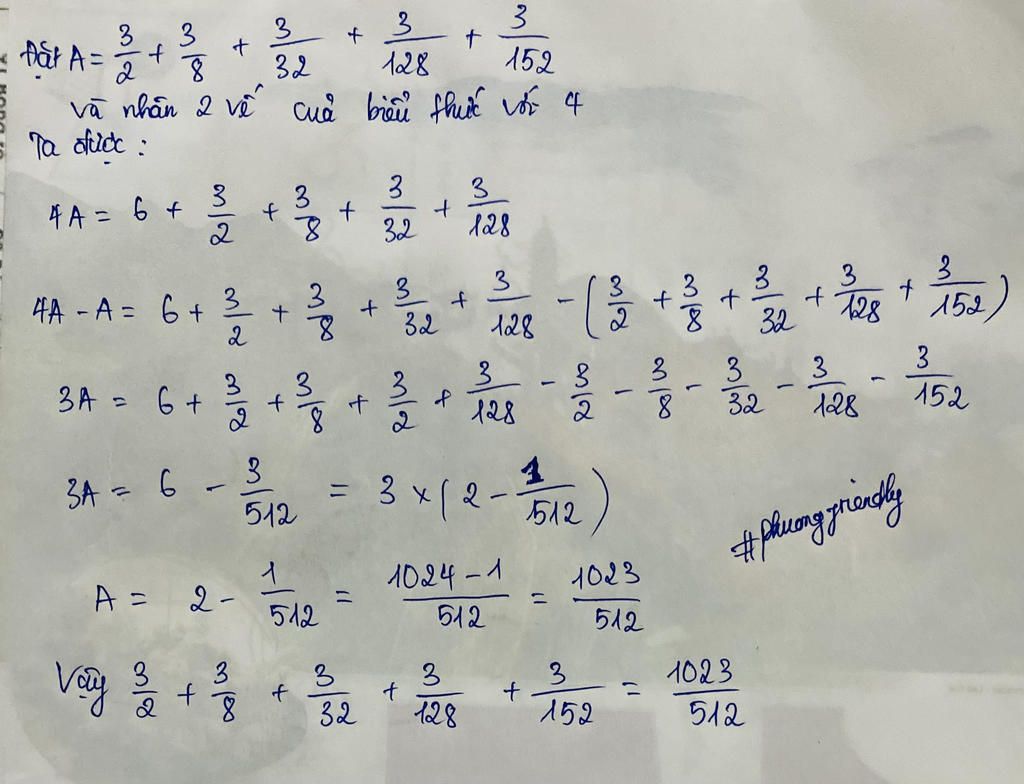 Đặt A = 3/2 + 3/8 + 3/32 + 3/128 + 3/152
và nhân 2 vế của biểu thức với 4
Ta được:
4A = 6 + 3/2 + 3/8 + 3/32 + 3/128
4A - A = 6 + 3/2 + 3/8 + 3/32 + 3/128 - (3/2 + 3/8 + 3/32 + 3/128 + 3/152)
3A = 6 + 3/2 + 3/8 + 3/2 + 3/128 - 3/2 - 3/8 - 3/32 - 3/128 - 3/152
3A = 6 - 3/512 = 3 × (2 - 1/512)
#phuongfriendly
A = 2 - 1/512 = 1024 - 1/512 = 1023/512
Vậy 3/2 + 3/8 + 3/32 + 3/128 + 3/152 = 1023/512